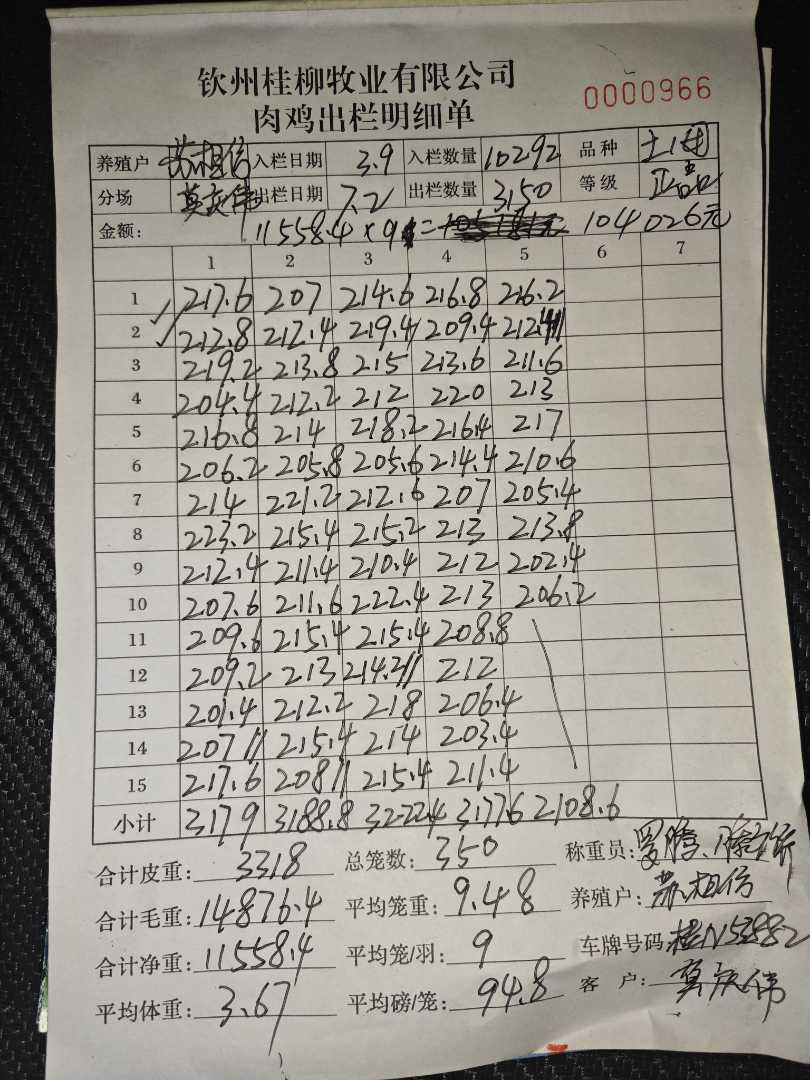 钦州桂柳牧业有限公司
肉鸡出栏明细单
0000966
养殖户 苏相信 入栏日期 3.9 入栏数量 10292 品种
分场 莫庆伟 出栏日期 7.2 出栏数量 3150 等级 正品
金额: 11558.4×9 = 104026元
1 2 3 4 5 6 7
1 217.6 207 214.6 216.8 216.2
2 212.8 212.4 219.4 209.4 212.4
3 219.2 213.8 215 213.6 211.6
4 204.4 212.2 212 220 213
5 216.8 214 218.2 216.4 217
6 206.2 205.8 205.6 214.4 210.6
7 214 221.2 212.6 207 205.4
8 223.2 215.4 215.2 213 213.8
9 212.4 211.4 210.4 212 202.4
10 207.6 211.6 222.4 213 206.2
11 209.6 215.4 215.4 208.8
12 209.2 213 214.2// 212
13 201.4 212.2 218 206.4
14 207// 215.4 214 203.4
15 217.6 208// 215.4 211.4
小计 3179 3188.8 3222.4 3177.6 2108.6
合计皮重: 3318 总笼数: 350 称重员:
合计毛重: 14876.4 平均笼重: 9.48 养殖户: 苏相信
合计净重: 11558.4 平均笼/羽: 9 车牌号码: 桂N53882
平均体重: 3.67 平均磅/笼: 94.8 客户: 莫庆伟